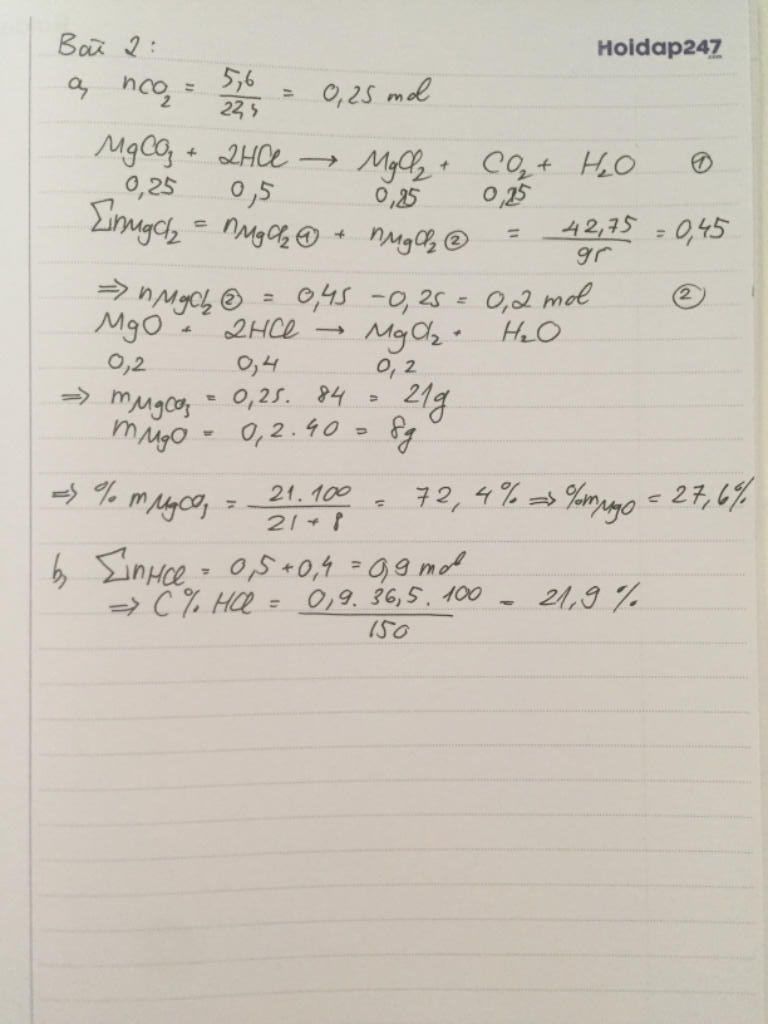 Bài 2:
Hoidap247.com
a, nCO₂ = 5,6 / 22,4 = 0,25 mol
MgCO₃ + 2HCl → MgCl₂ + CO₂ + H₂O ①
0,25 0,5 0,25 0,25
∑nMgCl₂ = nMgCl₂① + nMgCl₂② = 42,75 / 95 = 0,45
⇒ nMgCl₂② = 0,45 - 0,25 = 0,2 mol ②
MgO + 2HCl → MgCl₂ + H₂O
0,2 0,4 0,2
⇒ mMgCO₃ = 0,25. 84 = 21g
mMgO = 0,2.40 = 8g
⇒ % mMgCO₃ = 21.100 / 21+8 = 72,4% ⇒ %mMgO = 27,6%
b, ∑nHCl = 0,5+0,4 = 0,9 mol
⇒ C% HCl = 0,9. 36,5. 100 / 150 = 21,9 %